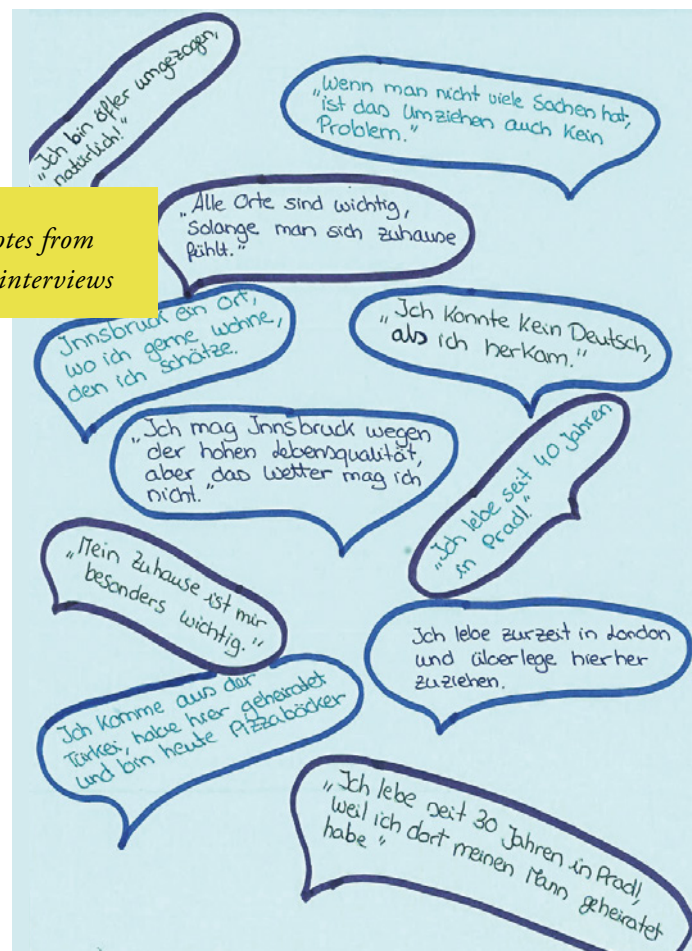 „Ich bin öfter umgezogen,
natürlich!"
„Wenn man nicht viele Sachen hat,
ist das Umziehen auch kein
Problem."
„Alle Orte sind wichtig,
solange man sich zuhause
fühlt."
otes from
interviews
Innsbruck ein Ort,
wo ich gerne wohne,
den ich schätze.
„Ich konnte kein Deutsch,
als ich herkam."
„Ich mag Innsbruck wegen
der hohen Lebensqualität,
aber das Wetter mag ich
nicht."
„Ich lebe seit 40 Jahren
in Pradl."
„Mein Zuhause ist mir
besonders wichtig."
Ich lebe zurzeit in London
und überlege hierher
zuziehen.
Ich komme aus der
Türkei, habe hier geheiratet
und bin heute Pizzabäcker
„Ich lebe seit 30 Jahren in Pradl,
weil ich dort meinen Mann geheiratet
habe"